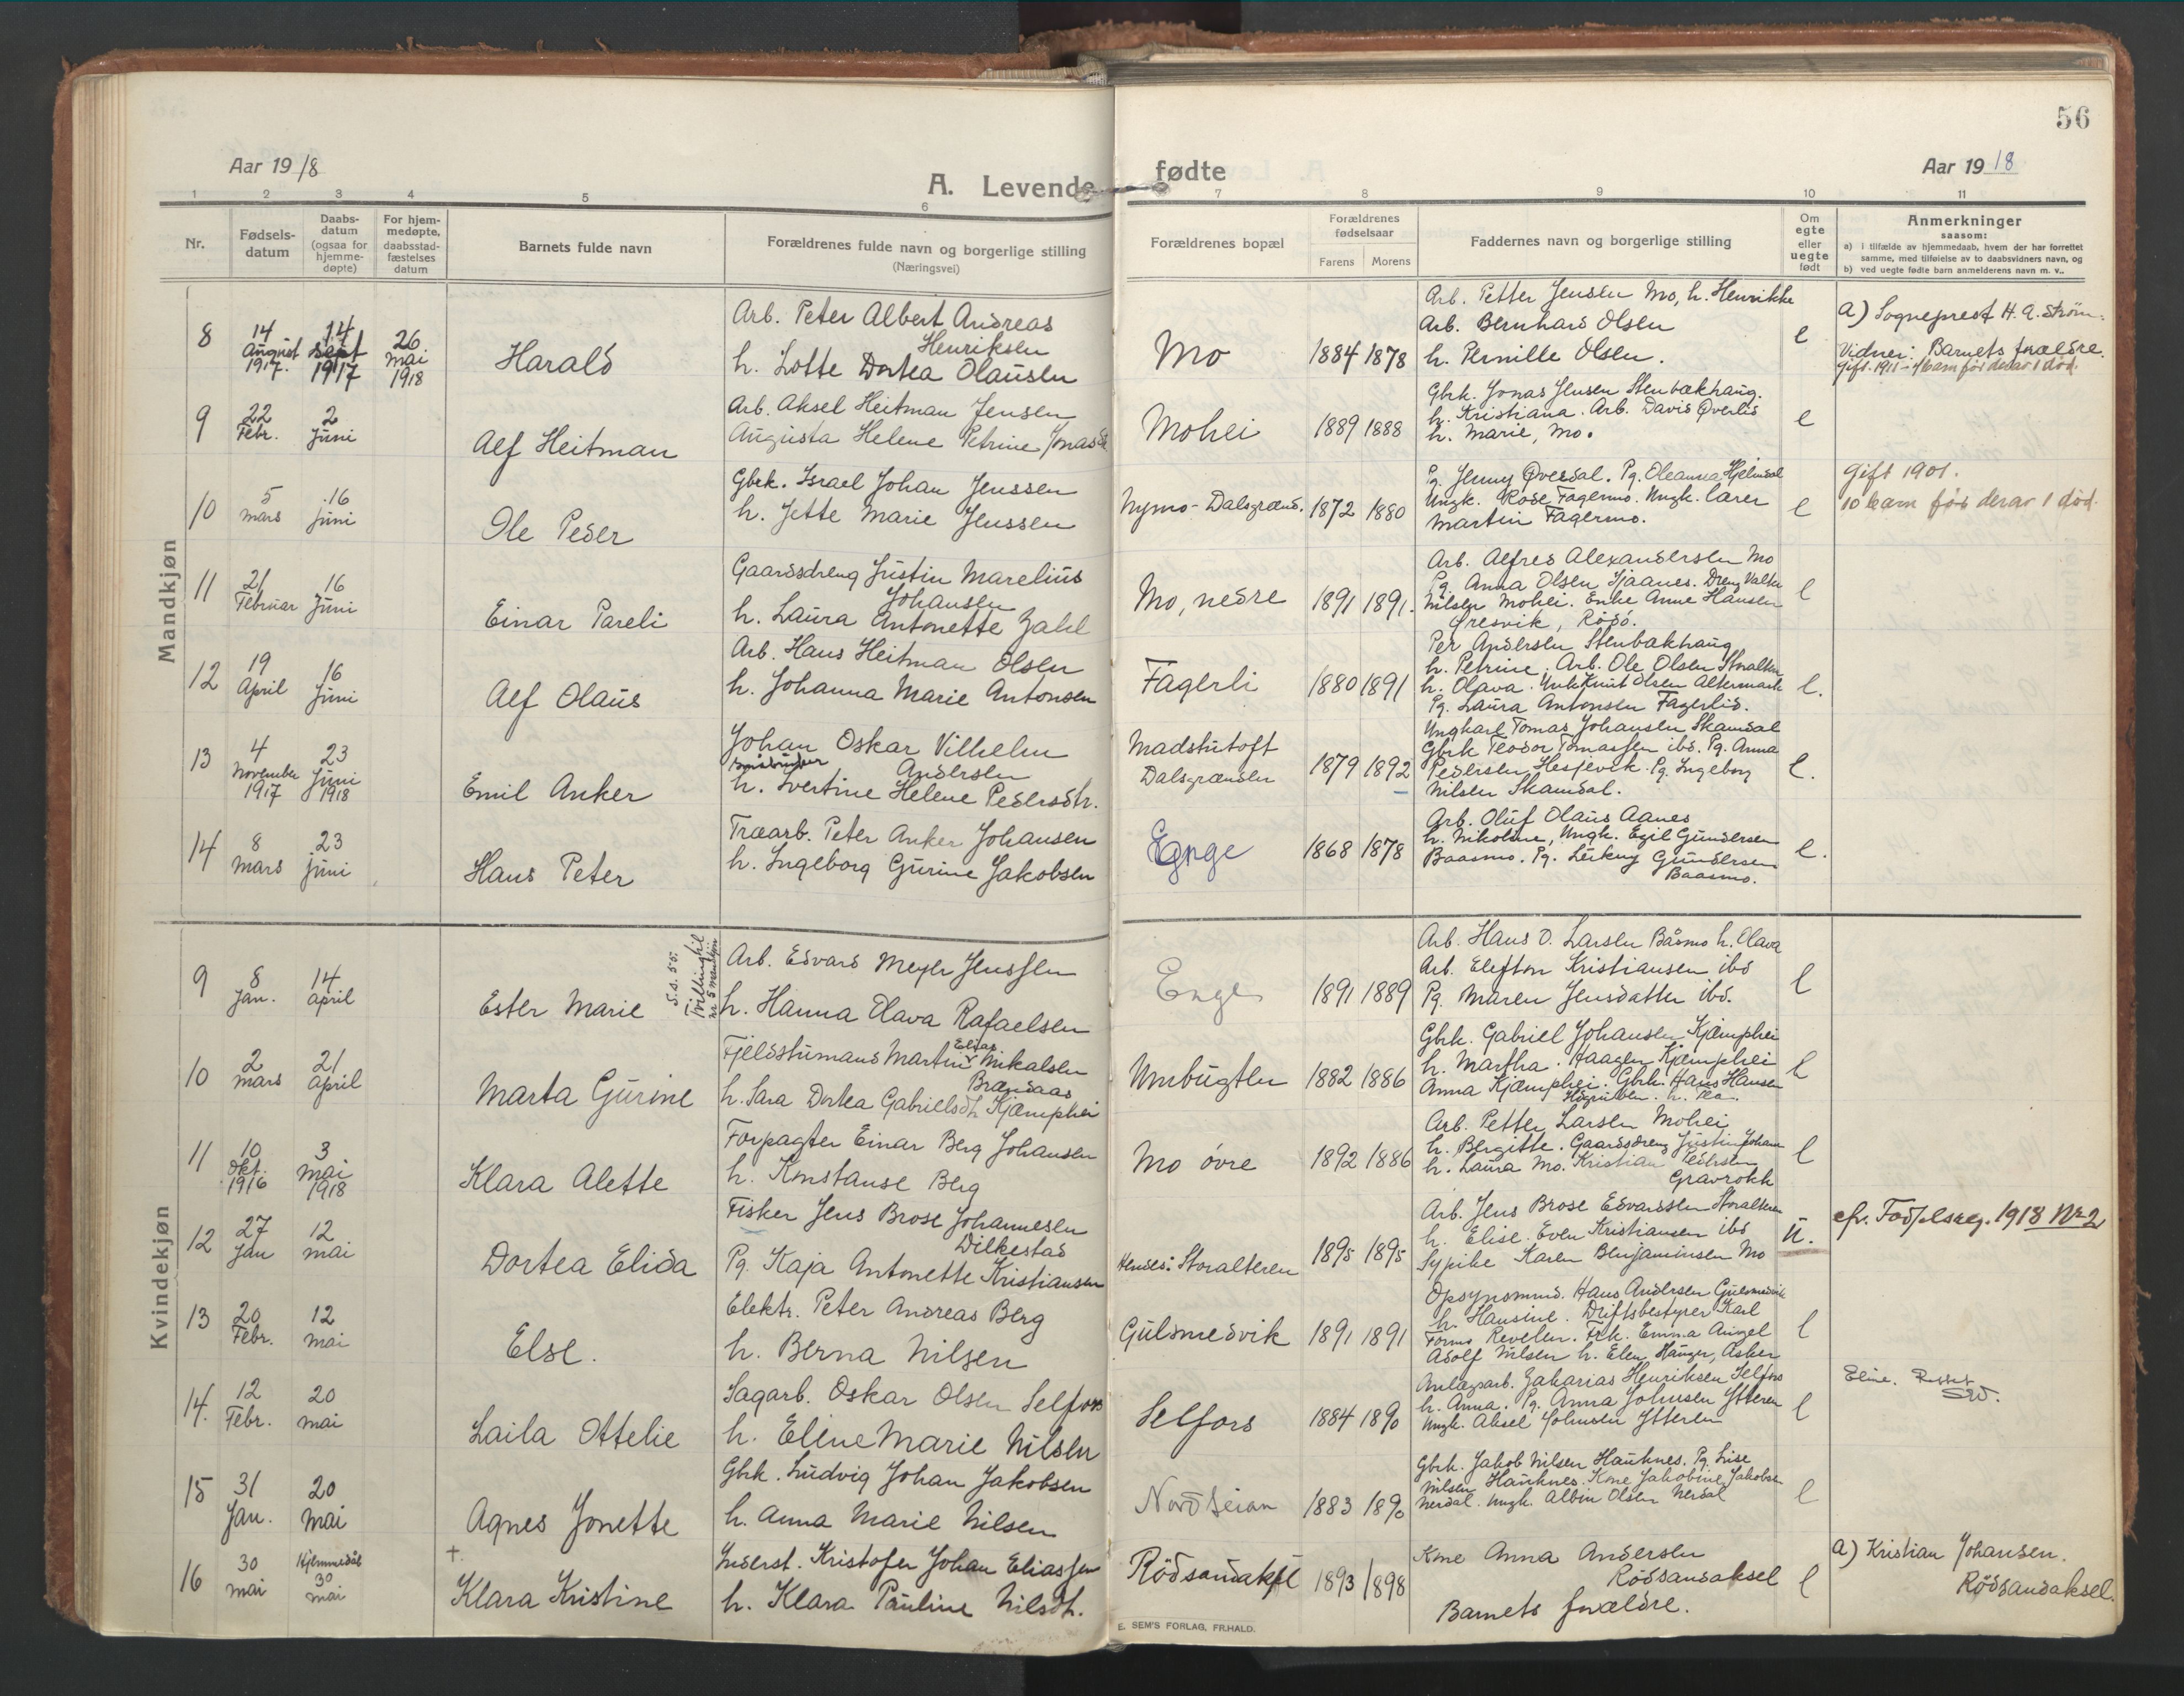 56
Aar 1918
A. Levende fødte
Aar 1918
1 2 3 4 5 6 7 8 9 10 11
Nr.
Fødsels-
datum
Daabs-
datum
(ogsaa for
hjemme-
døpte)
For hjem-
medøpte,
daabsstad-
fæstelses
datum
Barnets fulde navn
Forældrenes fulde navn og borgerlige stilling
(Næringsvei)
Forældrenes bopæl
Forældrenes
fødselsaar
Farens Morens
Faddernes navn og borgerlige stilling
Om
egte
eller
uegte
født
Anmerkninger
saasom:
a) i tilfælde av hjemmedaab, hvem der har forrettet
samme, med tilføielse av to daabsvidners navn, og
b) ved uegte fødte barn anmelderens navn m. v..
Mandkjøn
8
14
August
1917.
14
sept
1917
26
mai
1918
Harald
Arb. Peter Albert Andreas
Henriksen
h. Lotte Dortea Olausen
Mo
1884 1878
Arb. Petter Jensen Mo, h. Henrikke
Arb. Bernhard Olsen
h. Pernille Olsen.
e
a) Sogneprest H. A. Strøm.
Vidner: Barnets forældre.
Gift. 1911 - 1 barn før derav 1 død.
9
22
Febr.
2
Juni
Alf Heitman
Arb. Aksel Heitman Jensen
Augusta Helene Petrine Jonasd
Mohei
1889 1888
Gbrk. Jonas Jensen Stenbækhaug.
h. Kristiana. Arb. David Øverlid
h. Marie, Mo.
e
10
5
mars
16
Juni
Ole Peder
Gbrk. Israel Johan Jenssen
h. Jette Marie Jenssen
Nymo-Dalsgrænd.
1872 1880
Pg. Jenny Øverdal. Pg. Oleanna Hjelmdal
Ungk. Rose Fagermo. Ungk. lærer
Martin Fagermo.
e
Gift 1901.
10 barn før derav 1 død.
11
21
Februar
16
Juni
Einar Pareli
Gaardsdreng Justin Marelius
Johansen
h. Laura Antonette Zahl
Mo, nedre
1891 1891.
Arb. Alfred Alexandersen Mo
Pg. Anna Olsen Hjaanes. Dreng Valter
Nilsen Mohei. Enke Anne Hansen
Øresvik, Rødø.
e
12
19
April
16
Juni
Alf Olaus
Arb. Hans Heitman Olsen
h. Johanna Marie Antonsen
Fagerli
1880 1891
Per Andersen Stenbækhaug
h. Petrine. Arb. Ole Olsen Storalteren
h. Olava. Ungk Knut Olsen Altermark
Pg. Laura Antonsen Fagerlid.
e.
13
4
November
1917
23
Juni
1918
Emil Anker
Johan Oskar Vilhelm
Andersen
h. Svertine Helene Pedersdtr.
Madshutoft
Dalsgrænden
1879 1892
Ungkarl Tomas Johansen Skamdal
Gbrk Teodor Tomassen ibd. Pg. Anna
Pedersen Hesjevik. Pg. Ingeborg
Nilsen Skamdal.
e.
14
8
mars
23
juni
Hans Peter
Træarb. Peter Anker Johansen
h. Ingeborg Gurine Jakobsen
Enge
1868 1878
Arb. Oluf Olaus Aanes
h. Nikoline, Ungk. Egil Gundersen
Baasmo. Pg. Gundersen
Baasmo.
e.
Kvindekjøn
9
8
Jan.
14
april
Ester Marie
S. d. 55.
Tvilling til
nr 5 mandkjøn
Arb. Edvard Meyer Jenssen
h. Hanna Olava Rafaelsen
Enge
1891 1889
Arb. Hans O. Larsen Båsmo h. Olava
Arb. Elefton Kristiansen ibd
Pg. Maren Jensdatter ibd.
e
10
2
mars
21
april
Marta Gurine
Fjeldstumand Martin Elias Mikalsen
Brændaas
h. Sara Dortea Gabrielsdtr Kjæmphei
Umbugten
1882 1886
Gbrk. Gabriel Johansen Kjæmphei
h. Martha. Haagen Kjæmphei
Anna Kjæmphei. Gbrk. Hans Hansen
e
11
10
Okt.
1916
3
Mai
1918
Klara Alette
Forpagter Einar Berg Johansen
h. Konstanse Berg
Mo øvre
1892 1886
Arb. Petter Larsen Mohei
h. Bergitte. Gaardsdreng Justin Johan
h. Laura Mo. Kristian Pedersen
Gravrokk
e
12
27
Jan
12
mai
Dortea Elida
Fisker Jens Brose Johannesen
Dilkestad
Pg. Kaja Antonette Kristiansen
Hendes: Storalteren
1895 1895
Arb. Jens Brose Edvardsen Storalteren
h. Elise. Even Kristiansen ibd
Sypike Karen Benjaminsen Mo
u.
cfr. Fødselsreg. 1918 Nr 2
13
20
Febr.
12
mai
Else.
Elektr. Peter Andreas Berg
h. Berna Nilsen
Gulsmedvik
1891 1891
Opsynsmnd. Hans Andersen Gulsmedvik
h. Hansine. Driftsbestyrer Karl
Formo Revelen. Frk. Emma Aunget
Adolf Nilsen h. Elen Hauger, Asker
e
14.
12
Febr.
20
mai
Laila Ottelie
Sagarb. Oskar Olsen Selfors
h. Eline Marie Nilsen
Selfors
1884 1890
Anlægsarb. Zakarias Henriksen Selfors
h. Anna. Pg. Anna Johnsen Ytteren
Ungk. Aksel Johnsen Ytteren
e
15
31
Jan.
20
Mai
Agnes Jonette
Gbrk. Ludvig Johan Jakobsen
h. Anna Marie Nilsen
Nord Leiran
1883 1890
Gbrk. Jakob Nilsen Hauknes. Pg. Lise
Nilsen Hauknes. Kone Jakobine Jakobsen
Nerdal. Ungk. Albin Olsen Nerdal
e
16
30
mai
Hjemmedåb
30
mai
†.
Klara Kristine
Inderst. Kristofer Johan Eliassen
h. Klara Pauline Nilsdt.
Rödsandaksel
1893 1898
Kone Anna Andersen
Rödsandaksel
Barnets forældre.
e
a) Kristian Johansen.
Rödsandaksel.
E. SEM'S FORLAG, FR.HALD.